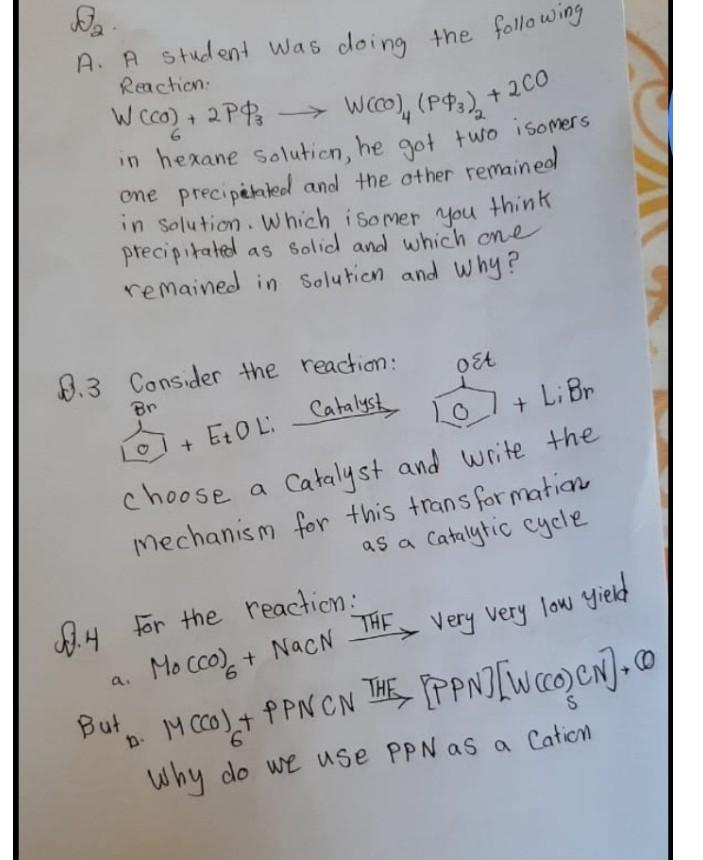 Q2.
A. A student was doing the following
Reaction:
W(CO)6 + 2PΦ3 → W(CO)4 (PΦ3)2 + 2CO
in hexane solution, he got two isomers
one precipitated and the other remained
in solution. Which isomer you think
precipitated as solid and which one
remained in solution and why?
Q.3 Consider the reaction:
Br OEt
+ EtOLi Catalyst → + LiBr
choose a catalyst and write the
mechanism for this transformation
as a catalytic cycle
Q.4 For the reaction:
a. Mo(CO)6 + NaCN THF → very very low yield
But b. M(CO)6 + PPNCN THF → [PPN][W(CO)5CN] + CO
Why do we use PPN as a Cation